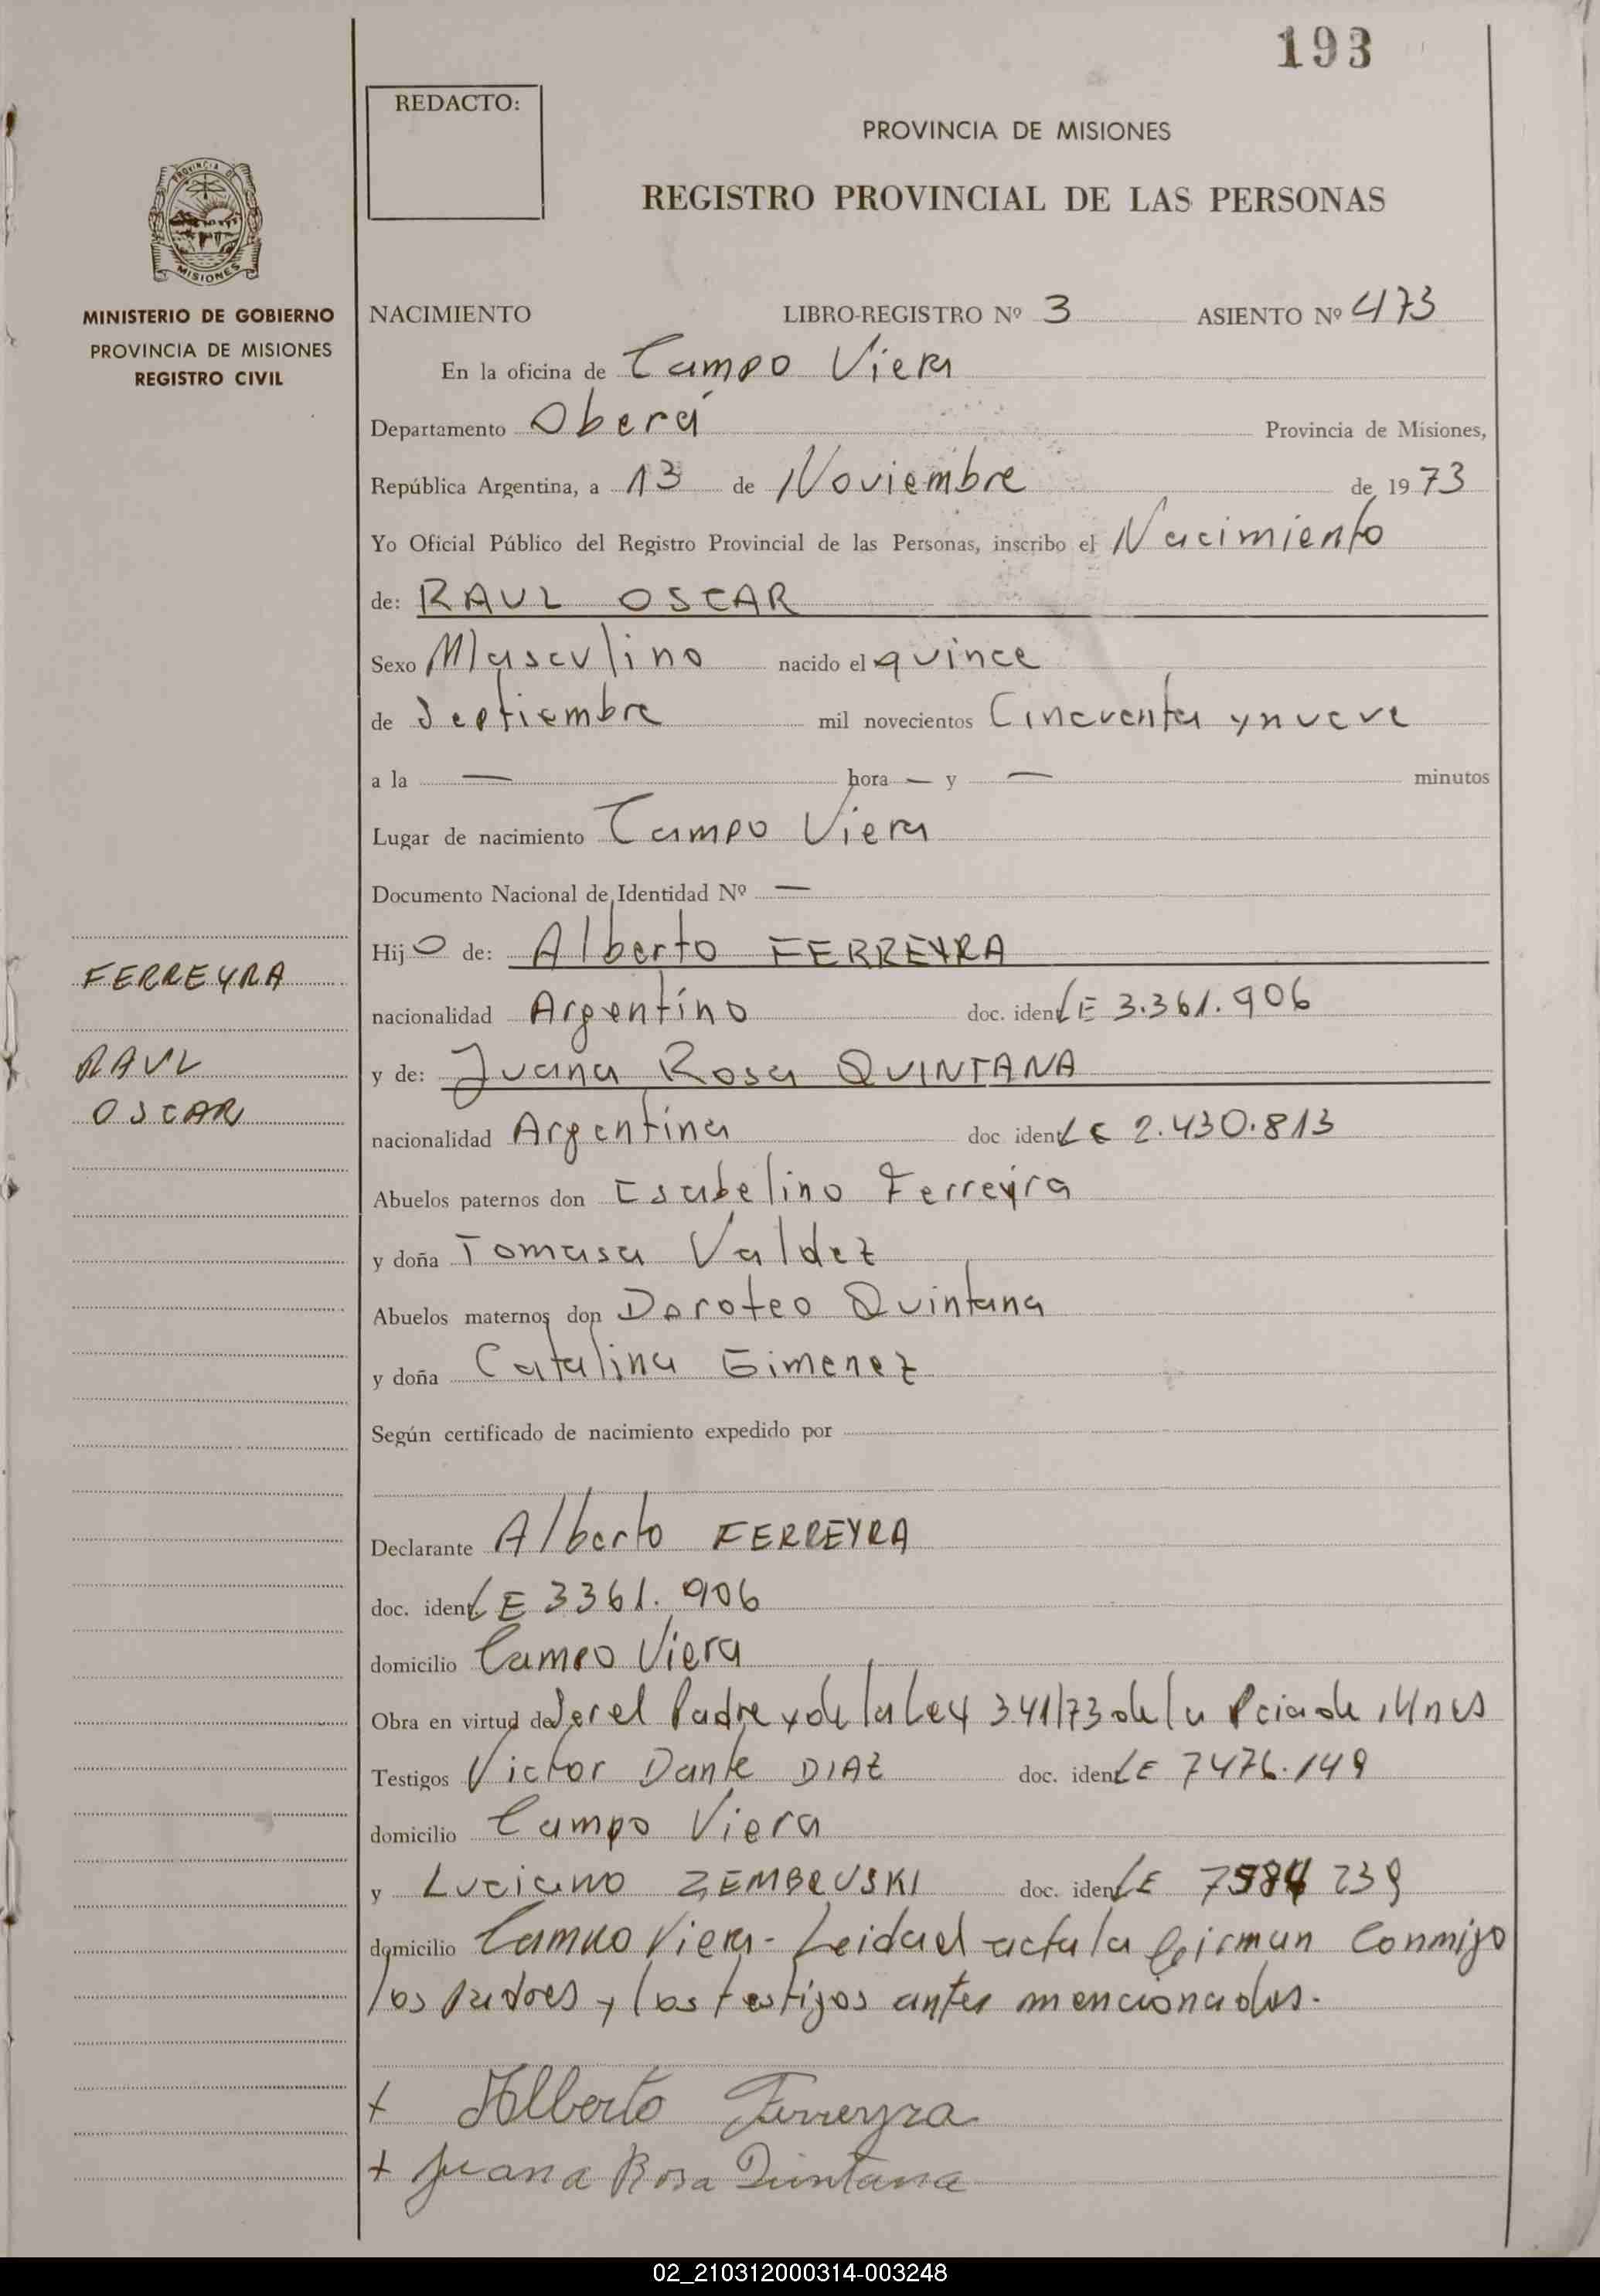 193
REDACTO:
PROVINCIA DE MISIONES
REGISTRO PROVINCIAL DE LAS PERSONAS
PROVINCIA DE
MISIONES
MINISTERIO DE GOBIERNO
PROVINCIA DE MISIONES
REGISTRO CIVIL
NACIMIENTO LIBRO-REGISTRO Nº 3 ASIENTO Nº 473
En la oficina de Campo Viera
Departamento Oberá Provincia de Misiones,
República Argentina, a 13 de Noviembre de 1973
Yo Oficial Público del Registro Provincial de las Personas, inscribo el Nacimiento
de: RAUL OSCAR
Sexo Masculino nacido el quince
de Septiembre mil novecientos Cincuenta y nueve
a la — hora — y — minutos
Lugar de nacimiento Campo Viera
Documento Nacional de Identidad Nº —
Hijo de: Alberto FERREYRA
FERREYRA
nacionalidad Argentino doc. ident LE 3.361.906
RAUL
y de: Juana Rosa QUINTANA
OSCAR
nacionalidad Argentina doc ident LE 2.430.813
Abuelos paternos don Isabelino Ferreyra
y doña Tomasa Valdez
Abuelos maternos don Doroteo Quintana
y doña Catalina Gimenez
Según certificado de nacimiento expedido por
Declarante Alberto FERREYRA
doc. ident LE 3361.906
domicilio Campo Viera
Obra en virtud de Ser el Padre y de la Ley 341/73 de la Pcia de Mnes
Testigos Victor Dante DIAZ doc. ident LE 7476.149
domicilio Campo Viera
y Luciano doc. ident LE 239
domicilio Campo Viera - Leida el acta la firman Conmigo
los padres y los testigos antes mencionados.
+ Alberto Ferreyra
+ Juana Rosa Quintana
02_210312000314-003248